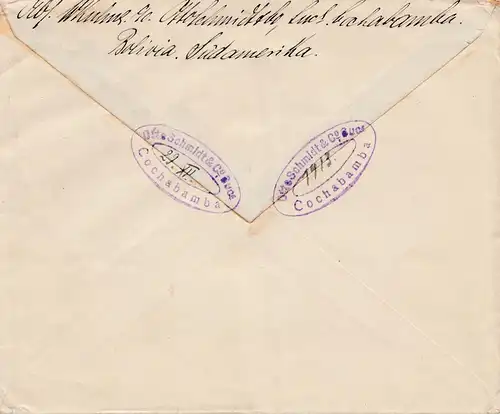 Abs. c/o Otto Schmidt & Co, Suc. Cochabamba.
Bolivia. Südamerika.
Otto Schmidt & Co Sucs
22. XII.
Cochabamba
Otto Schmidt & Co Sucs
1913
Cochabamba